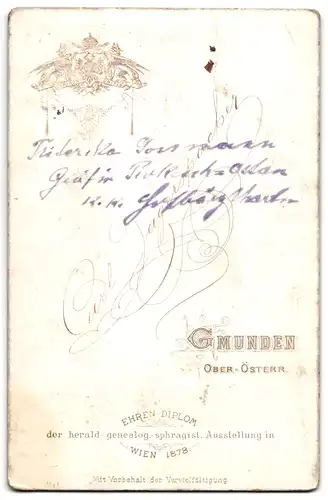 Friederike Gossmann
Gräfin Prokesch-Osten
k. k. Hofburg
GMUNDEN
OBER-ÖSTERR.
EHREN DIPLOM
der herald-genealog-sphragist. Ausstellung in
WIEN 1878.
Mit Vorbehalt der Vervielfältigung